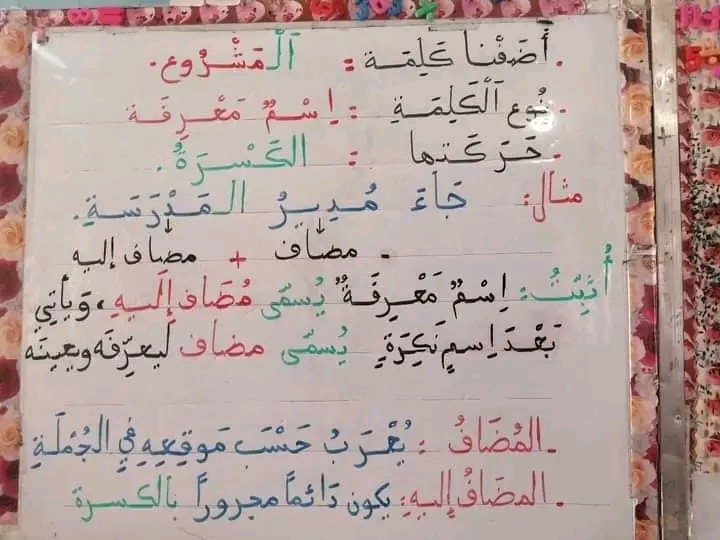 . أَضَفْنا كَلِمَة : اَلْمَشْرُوع .
. نُوع اَلْكَلِمَةِ : اِسْمٌ مَعْرِفَة
. حَرَكَتها : الكَسْرَةُ .
مثال: جَاءَ مُدِيرُ المَدْرَسَةِ.
- مضاف + مضاف إليه
أُثَبِّتُ : اِسْمٌ مَعْرِفَةٌ يُسمّى مُضَاف إلَيهِ ، وَيأتِي
بَعْدَ اِسمٍ نَكِرَةٍ يُسمّى مضاف ليعرِّفَه ويعينَه
- المُضَافُ : يُعْرَبُ حَسْبَ مَوقِعِهِ فِي الجُملَةِ
. المضَافُ إليهِ : يكون دَائماً مجروراً بالكسرة